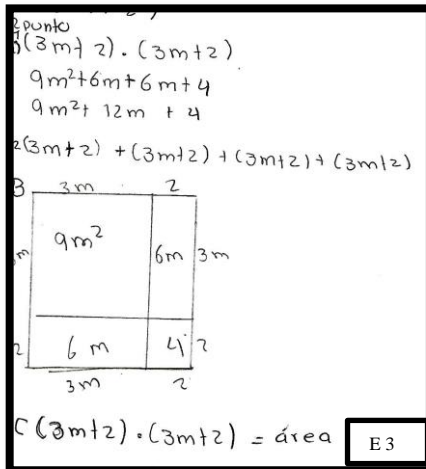 punto
(3m+2).(3m+2)
9m²+6m+6m+4
9m²+ 12m + 4
2(3m+2) + (3m+2) + (3m+2) + (3m+2)
B 3m 2
9m²
6m 3m
2 6 m 4 2
3m 2
C (3m+2).(3m+2) = área
E 3